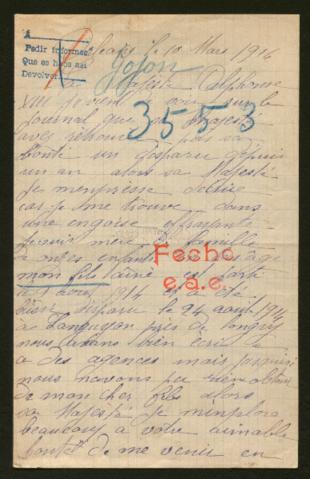 A
Pedir informes
Que es hijos así
Devolver
le 10 Mars 1916
Gojon
Majesté Alphonse
XIII je viens voir sur le
Journal que sa Majesté
avec retrouvé par sa
bonté un disparu depuis
un an alors sa Majesté
Je m'empresse d'écrire
car je me trouve dans
une engoise effrayante
mère de famille
3553
Fecho
e.a.e.
mon fils laîné est parti
1914 et a été
disparu le 24 août 1914
à Landuyon près de longwy
nous avons bien écrit
a des agences mais jusqu'ici
nous navons pu rien obtenir
de mon cher fils alors
sa Majesté Je m'implore
beaucoup à votre aimable
bonté de me venir en